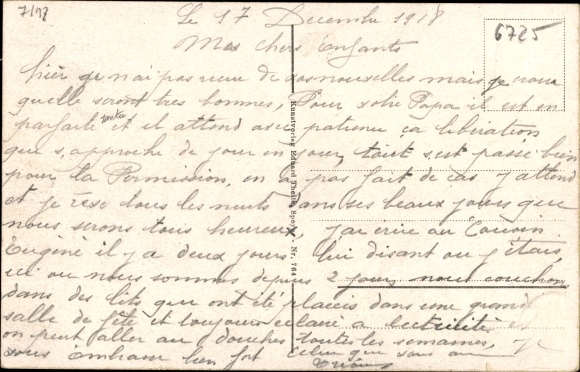 7/198
6725
Le 17 Decembre 1918
Mes chers enfants
hier je n'ai pas recue de vos nouvelles mais je croie
quelle seront tres bonnes, Pour votre Papa il est en
parfaite santée et il attend avec patience ça libération
que s, approche de jour en jour, tout s, est passé bien
pour la Permission, on a pas fait de cas j attend
et je rève tous les nuits dans ses beaux jours que
nous serons tous heureux j'ai ecrire au Cousin
Eugène il y a deux jours lui disant ou j'étais,
ici ou nous sommes depuis 2 jours, nous couchons
dans des lits que ont été, placeis dans une grand
salle de fête et toujours eclaire, a lectricité, et
on peut aller au douches toutes les semaines,
vous embrasse bien fort celui que vous aime
Kunstverlag Eduard Nr. 764